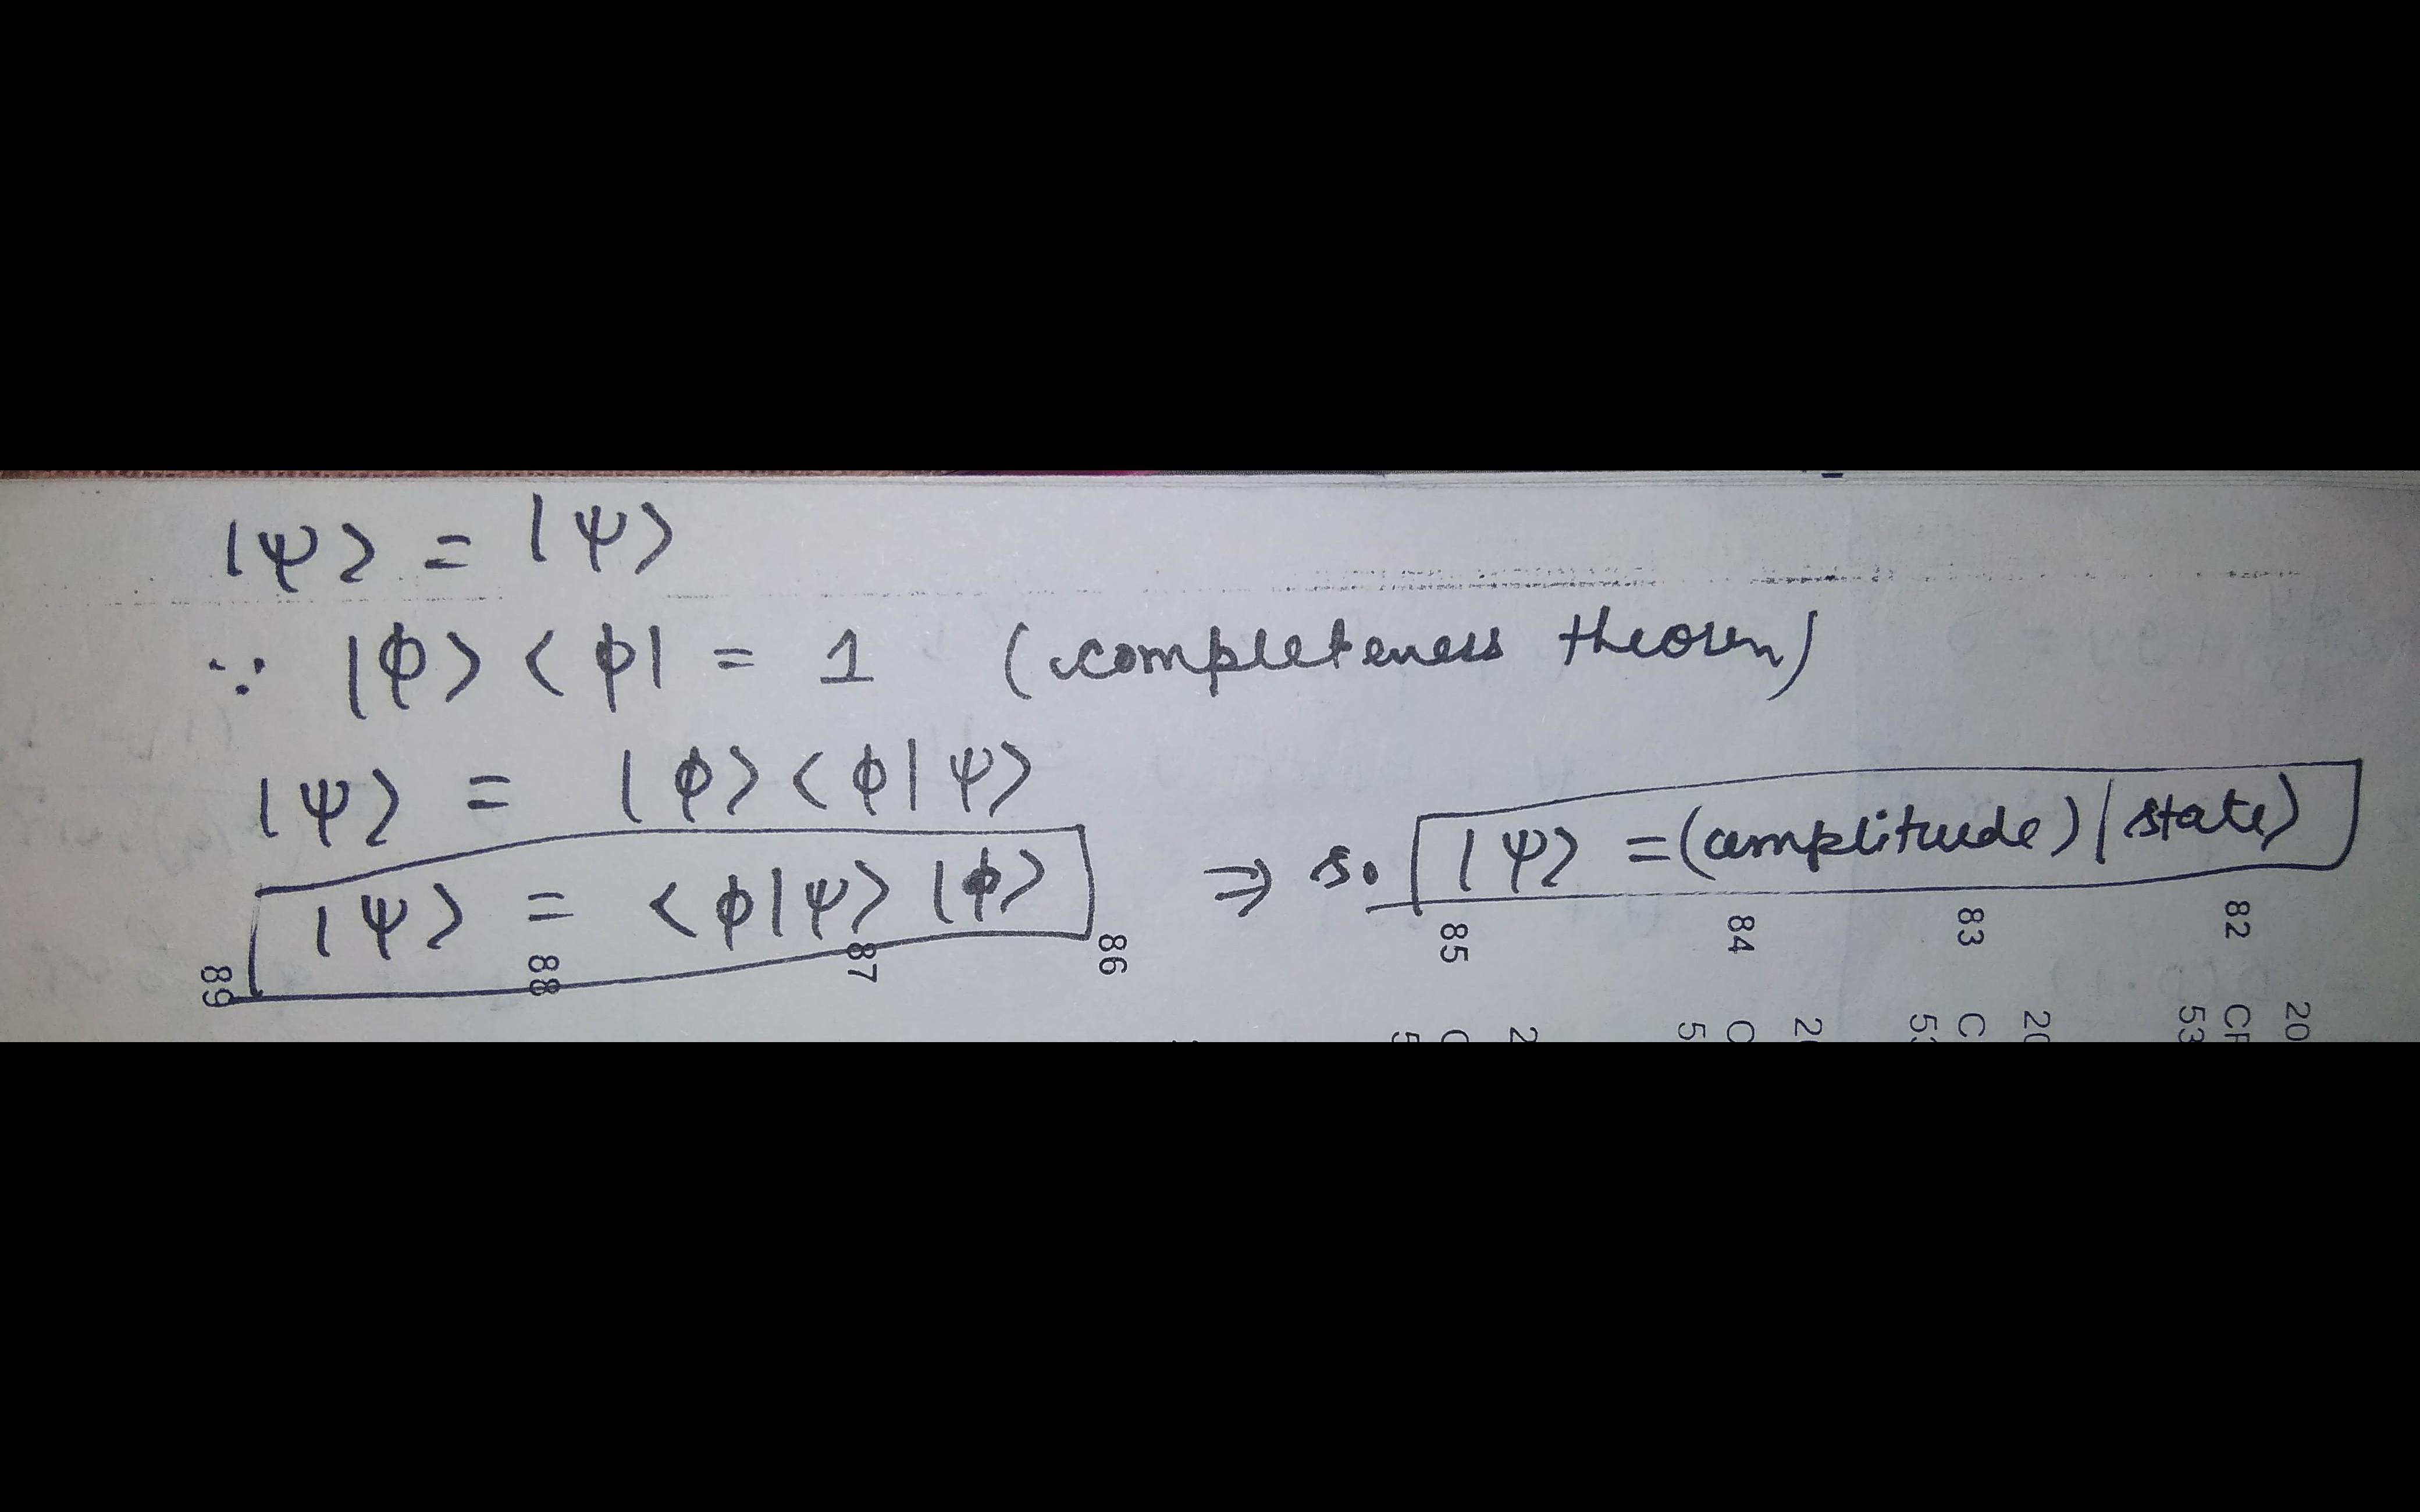 |ψ⟩ = |ψ⟩
∵ |ϕ⟩⟨ϕ| = 1 (completeness theorem)
|ψ⟩ = |ϕ⟩⟨ϕ|ψ⟩
|ψ⟩ = ⟨ϕ|ψ⟩|ϕ⟩ ⇒ so |ψ⟩ = (amplitude)|state⟩
89 88 87 86 85 84 83 82
20
CF
53